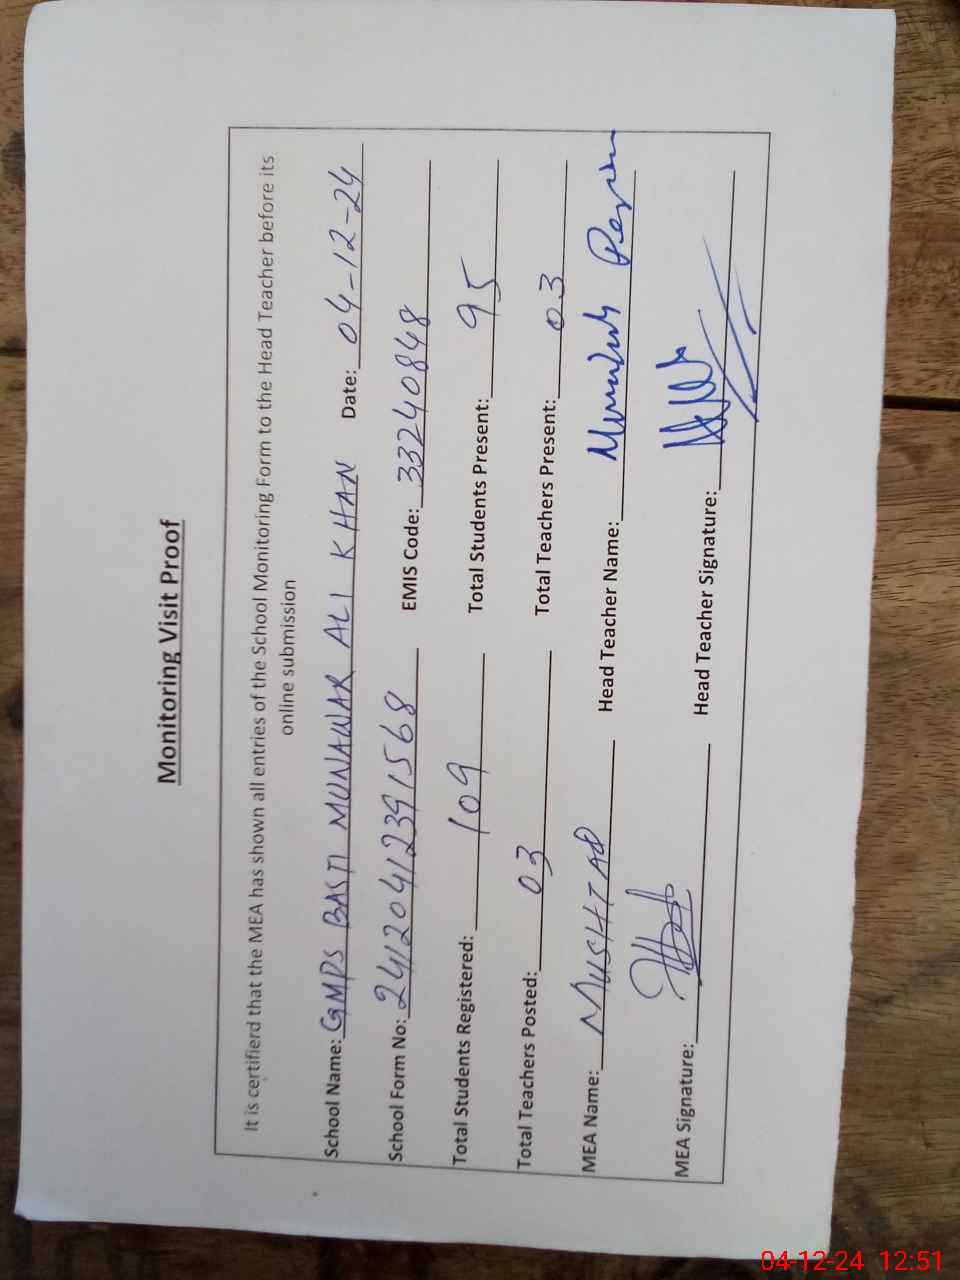 Monitoring Visit Proof
It is certifierd that the MEA has shown all entries of the School Monitoring Form to the Head Teacher before its
online submission
School Name: GMPS BASTI MUNAWAR ALI KHAN Date: 04-12-24
School Form No: 24120412391568 EMIS Code: 33240848
Total Students Registered: 109 Total Students Present: 95
Total Teachers Posted: 03 Total Teachers Present: 03
MEA Name: MUSHTAQ Head Teacher Name:
MEA Signature: Head Teacher Signature:
04-12-24 12:51